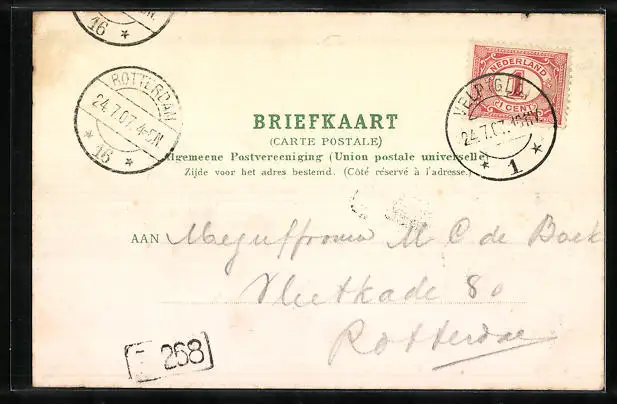 16
ROTTERDAM
24.7.07.4-5N
16
NEDERLAND
1
CENT
24.7.07.
1
BRIEFKAART
(CARTE POSTALE)
Algemeene Postvereeniging (Union postale universelle)
Zijde voor het adres bestemd. (Côté réservé à l'adresse.)
AAN Mejuffrouw M C de Boek
Vlietkade 80
Rotterdam
268